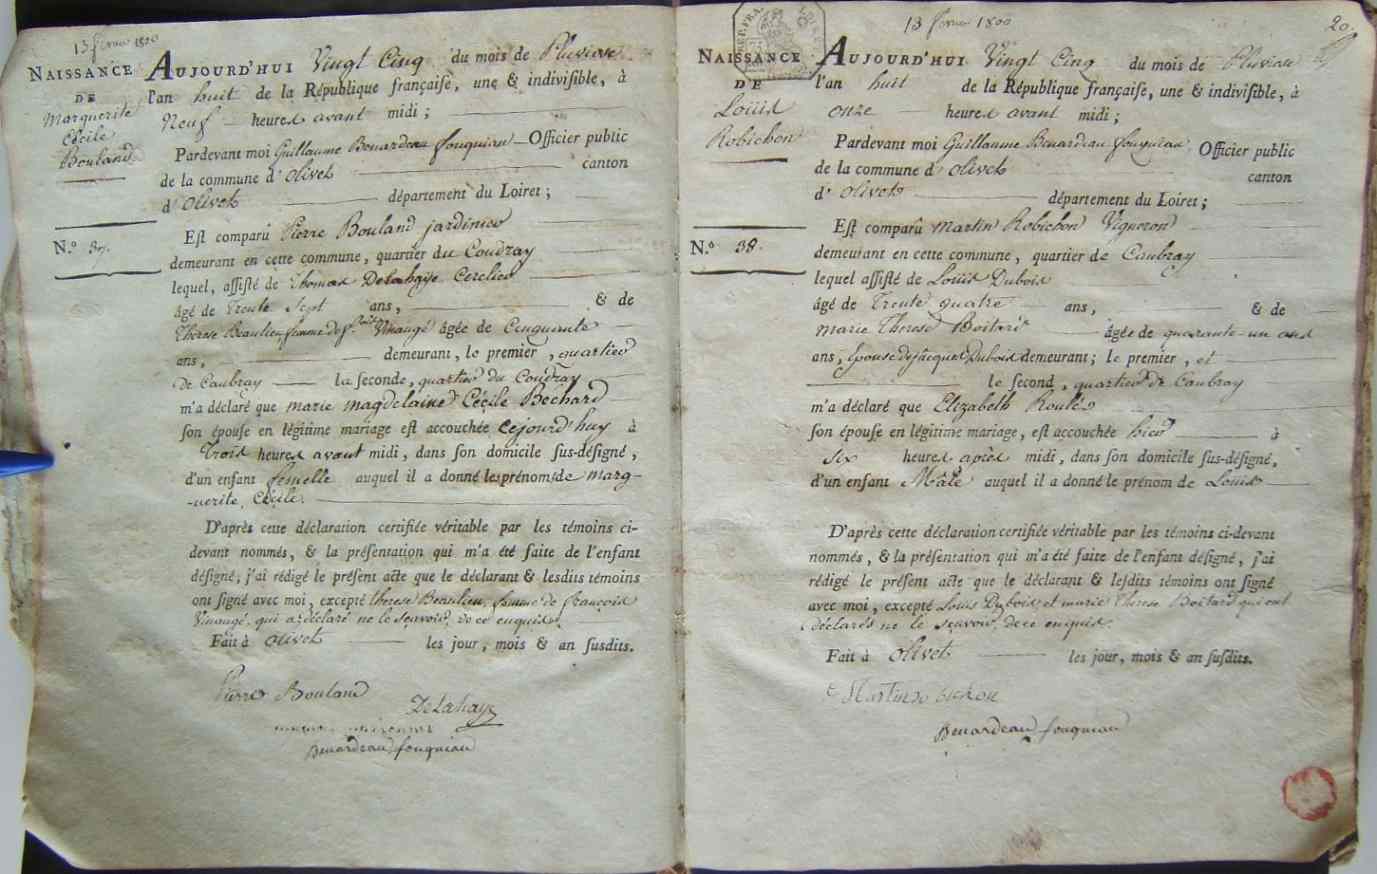 13 février 1800
NAISSANCE
DE
Marguerite
Cécile
Bouland
N.º 37.
AUJOURD'HUI Vingt Cinq du mois de Pluviose
l'an huit de la République françaiſe, une & indiviſible, à
Neuf heures avant midi ;
Pardevant moi Guillaume Benardeau fouquiau Officier public
de la commune d'olivet canton
d'olivet département du Loiret ;
Eſt comparû Pierre Bouland jardinier
demeurant en cette commune, quartier du Coudray
lequel, aſſiſté de Thomas Delahaye Cerclier
âgé de Trente Sept ans, & de
Thérèse Beaulieu femme de Vinaugé âgée de Cinquante
ans, demeurant, le premier, quartier
de Caubray la ſeconde, quartier du Coudray
m'a déclaré que marie magdelaine Cécile Béchard
ſon épouſe en légitime mariage eſt accouchée cejourd'huy à
Trois heures avant midi, dans ſon domicile ſus-déſigné,
d'un enfant femelle auquel il a donné les prénoms de marg-
-uerite, Cécile.
D'après cette déclaration certifiée véritable par les témoins ci-
devant nommés, & la préſentation qui m'a été faite de l'enfant
déſigné, j'ai rédigé le préſent acte que le déclarant & leſdits témoins
ont ſigné avec moi, excepté therese Beaulieu, femme de françois
Vinaugé, qui a déclaré ne le sçavoir, de ce enquis
Fait à olivet les jour, mois & an ſusdits.
Pierre Bouland
DeLahaye
Benardeau fouquiau
13 février 1800
20
NAISSANCE
DE
Louis
Robichon
N.º 38.
AUJOURD'HUI Vingt Cinq du mois de Pluviose
l'an huit de la République françaiſe, une & indiviſible, à
onze heures avant midi ;
Pardevant moi Guillaume Benardeau fouquiau Officier public
de la commune d'olivet canton
d'olivet département du Loiret ;
Eſt comparû Martin Robichon Vigneron
demeurant en cette commune, quartier de Caubray
lequel aſſiſté de Louis Dubois
âgé de Trente quatre ans, & de
marie Therese Boitard âgée de quarante-un ans
ans, épouse de jacques Dubois demeurant ; le premier, et
le second, quartier de Caubray
m'a déclaré que Elizabeth Roulle
ſon épouſe en légitime mariage, eſt accouchée hier à
six heures après midi, dans ſon domicile ſus-déſigné,
d'un enfant Mâle auquel il a donné le prénom de Louis
D'après cette déclaration certifiée véritable par les témoins ci-devant
nommés, & la préſentation qui m'a été faite de l'enfant déſigné, j'ai
rédigé le préſent acte que le déclarant & leſdits témoins ont ſigné
avec moi, excepté Louis Dubois, et marie Therese Boitard qui ont
déclarés ne le sçavoir de ce enquis.
Fait à olivet les jour, mois & an ſuſdits.
Martin robichon
Benardeau fouquiau